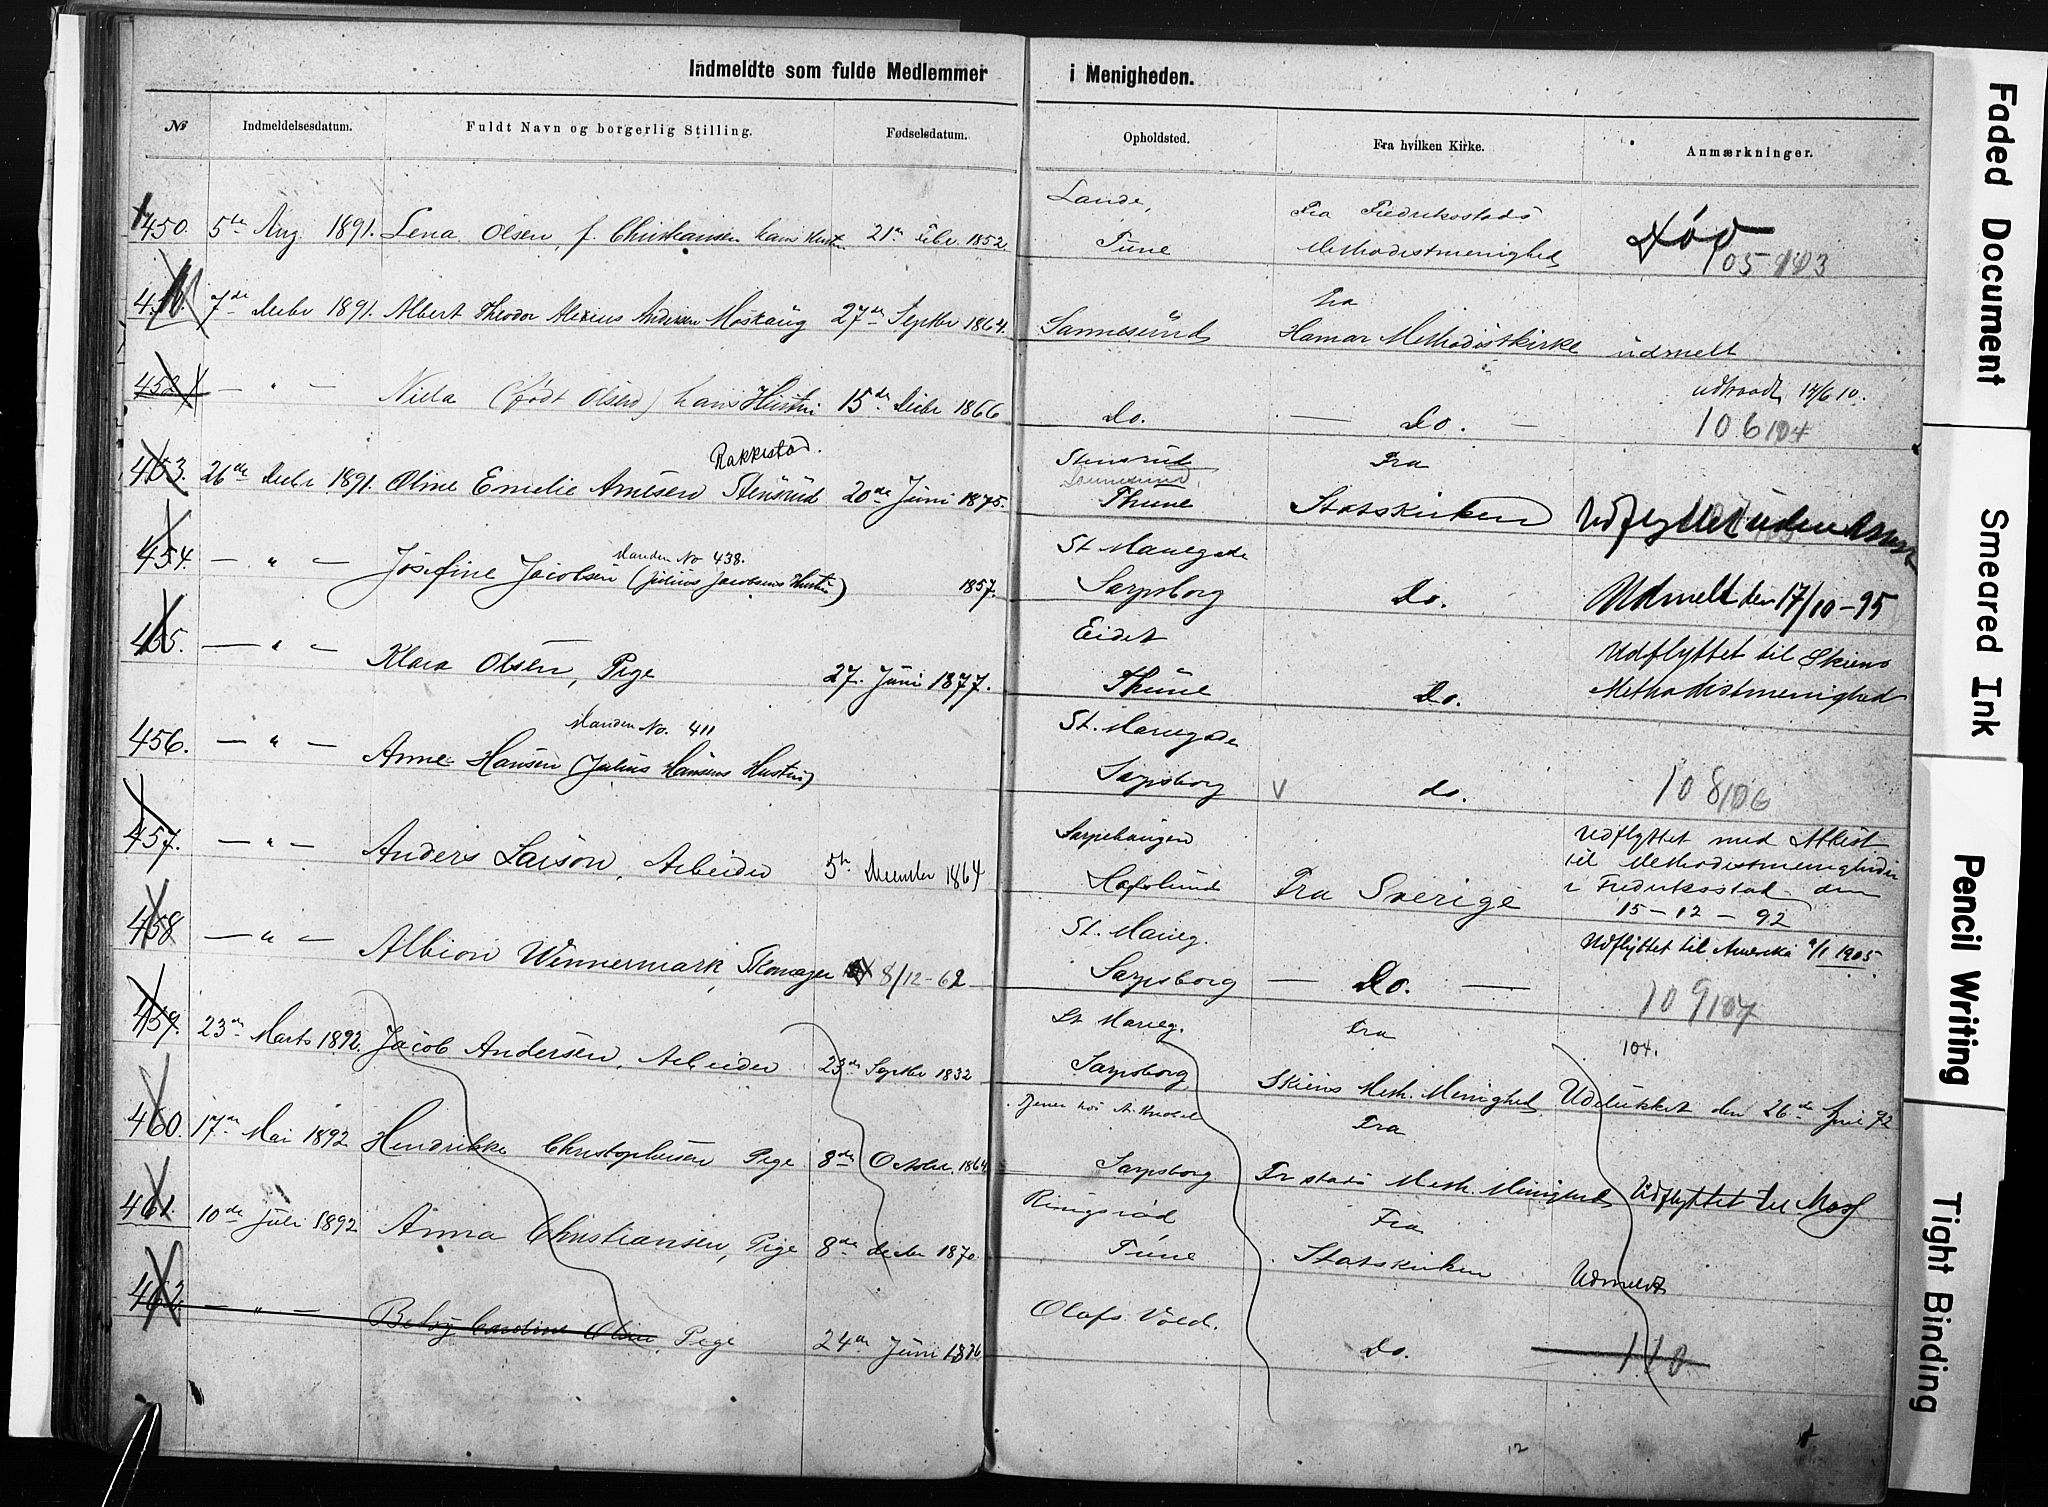 Indmeldte som fulde Medlemmer i Menigheden.
No Indmeldelsesdatum. Fuldt Navn og borgerlig Stilling. Fødselsdatum. Opholdsted. Fra hvilken Kirke. Anmærkninger.
Lande, Fra Fredriksstads
450. 5te Aug. 1891. Lena Olsen, f. Christiansen hans Hustru 21de Febr. 1852. Tune Methodistmenighed Død
105 103
Fra
7de Decbr 1891. Albert Theodor Alexius Andersen Moskaug 27de Septbr 1864. Sannesund Hamar Methodistkirke udmelt
udtraadt 14/6 10.
452 — " — Nicla (født Olsen) hans Hustru 15de Decbr 1866 Do. — Do. —
106 104
Rakkestad. Stensrud Fra
Sannesund
453. 26de Decbr 1891. Oline Emelie Arnesen Stensrud 20de Juni 1875. Thune Statskirken Udflyttet uden
Manden No 438. St. Mariegade
454. — " — Josefine Jacobsen (Julius Jacobsens Hustru) 1857. Sarpsborg Do. Udmelt den 17/10-95
Eidet Udflyttet til Skiens
455. — " — Klara Olsen, Pige 27. Juni 1877. Thune Do. Methodistmenighed
Manden No. 411 St. Mariegade
456. — " — Anne Hansen (Julius Hansens Hustru) Sarpsborg V do. 108 106
Sarpehaugen Udflyttet med Attest
til Methodistmenigheden
457. — " — Anders Larson, Arbeider 5te December 1864 Hafslund Fra Sverige i Fredriksstad den
15-12-92
St. Marieg. Udflyttet til Amerika 1905
458 — " — Albion Winnermark, Skomager 8/12-62 Sarpsborg — Do. —
109 107
St. Marieg. Fra 104.
459. 23de Marts 1892. Jacob Andersen, Arbeider 23de Septbr 1832 Sarpsborg Skiens Meth. Menighed. Udelukket den 26de 92
Tjener hos Fra
460. 17de Mai 1892 Hendrikke Christophersen Pige 8de Octobr. 1864 Sarpsborg Frstads Meth. Menighed Udflyttet til Moss
Ringsrød Fra
461. 10de Juli 1892 Anna Christiansen, Pige 8de Decbr 1870 Tune Statskirken Udmeldt
Olafs Vold.
462. — " — Betsy Caroline Olsen, Pige 24de Juni 1876 Do. 110
12
Faded Document
Smeared Ink
Pencil Writing
Tight Binding